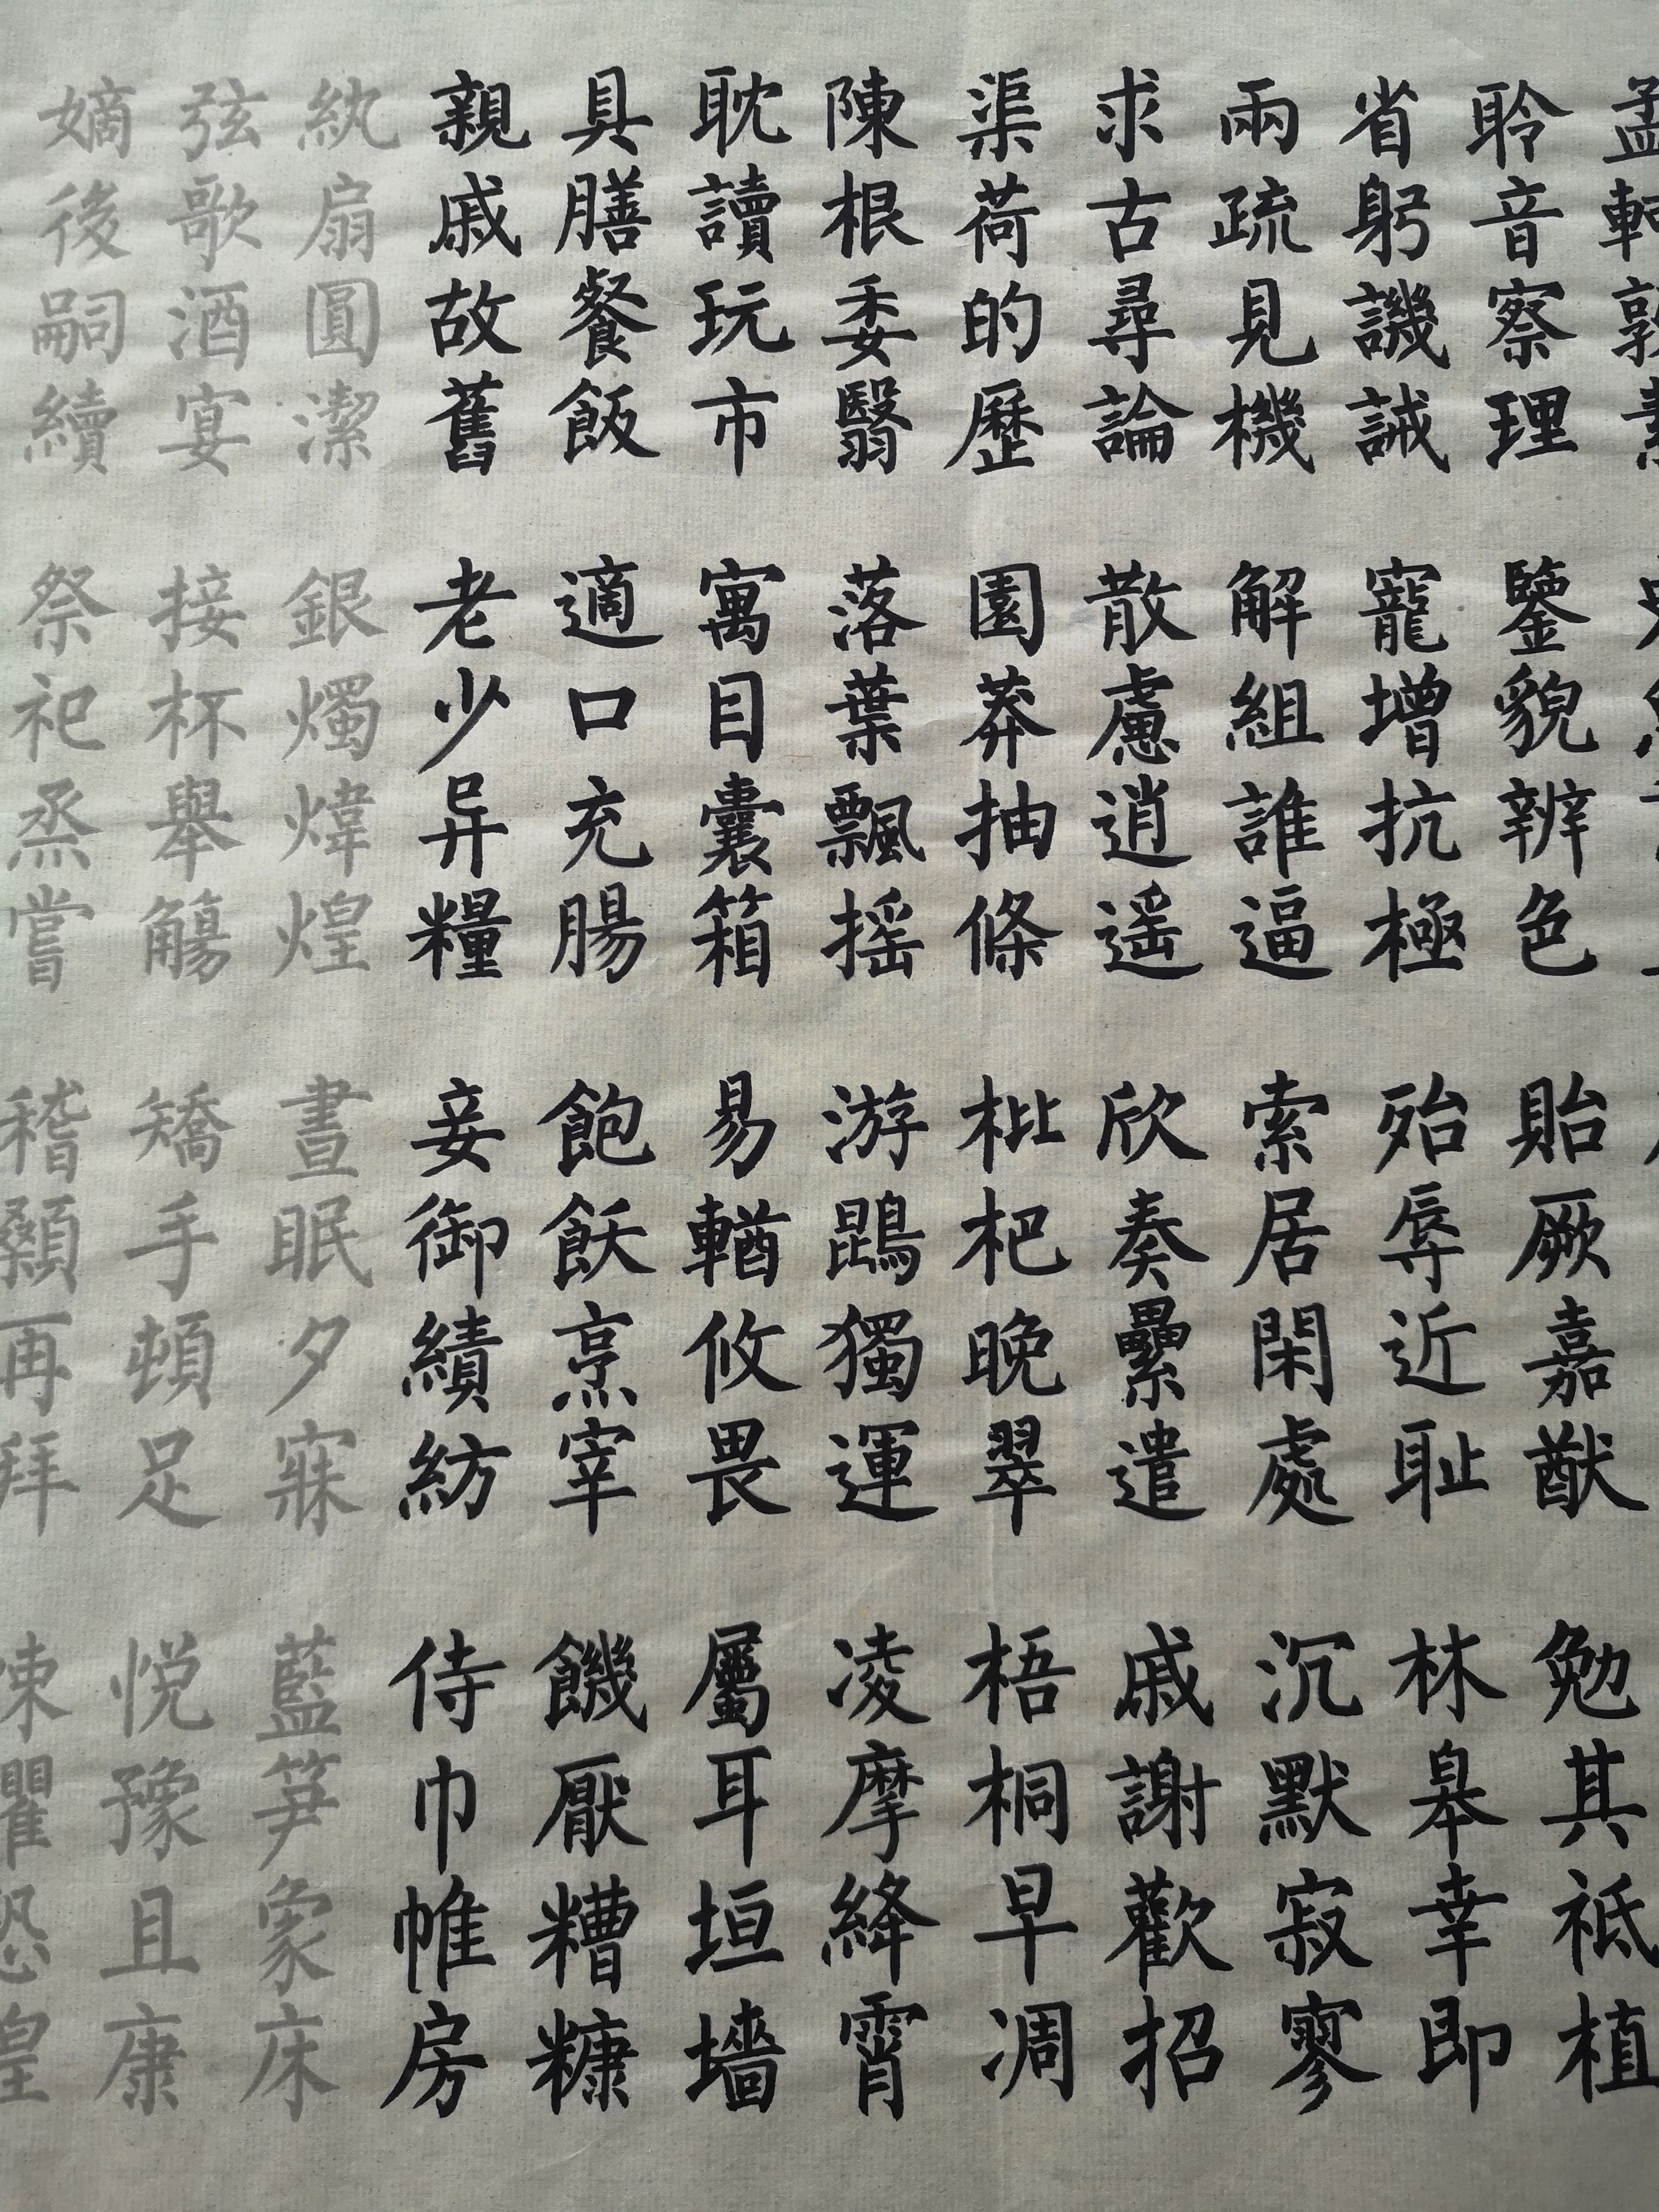 孟軻敦素
聆音察理鑒貌辨色貽厥嘉猷勉其祗植
省躬譏誡寵增抗極殆辱近耻林皋幸即
兩疏見機解組誰逼索居閑處沉默寂寥
求古尋論散慮逍遥欣奏纍遣戚謝歡招
渠荷的歷園莽抽條枇杷晚翠梧桐早凋
陳根委翳落葉飄摇游鵾獨運凌摩絳霄
耽讀玩市寓目囊箱易輶攸畏屬耳垣墻
具膳餐飯適口充腸飽飫烹宰饑厭糟糠
親戚故舊老少异糧妾御績紡侍巾帷房
紈扇圓潔銀燭煒煌晝眠夕寐藍笋象床
弦歌酒宴接杯舉觴矯手頓足悦豫且康
嫡後嗣續祭祀烝嘗稽顙再拜悚懼恐惶